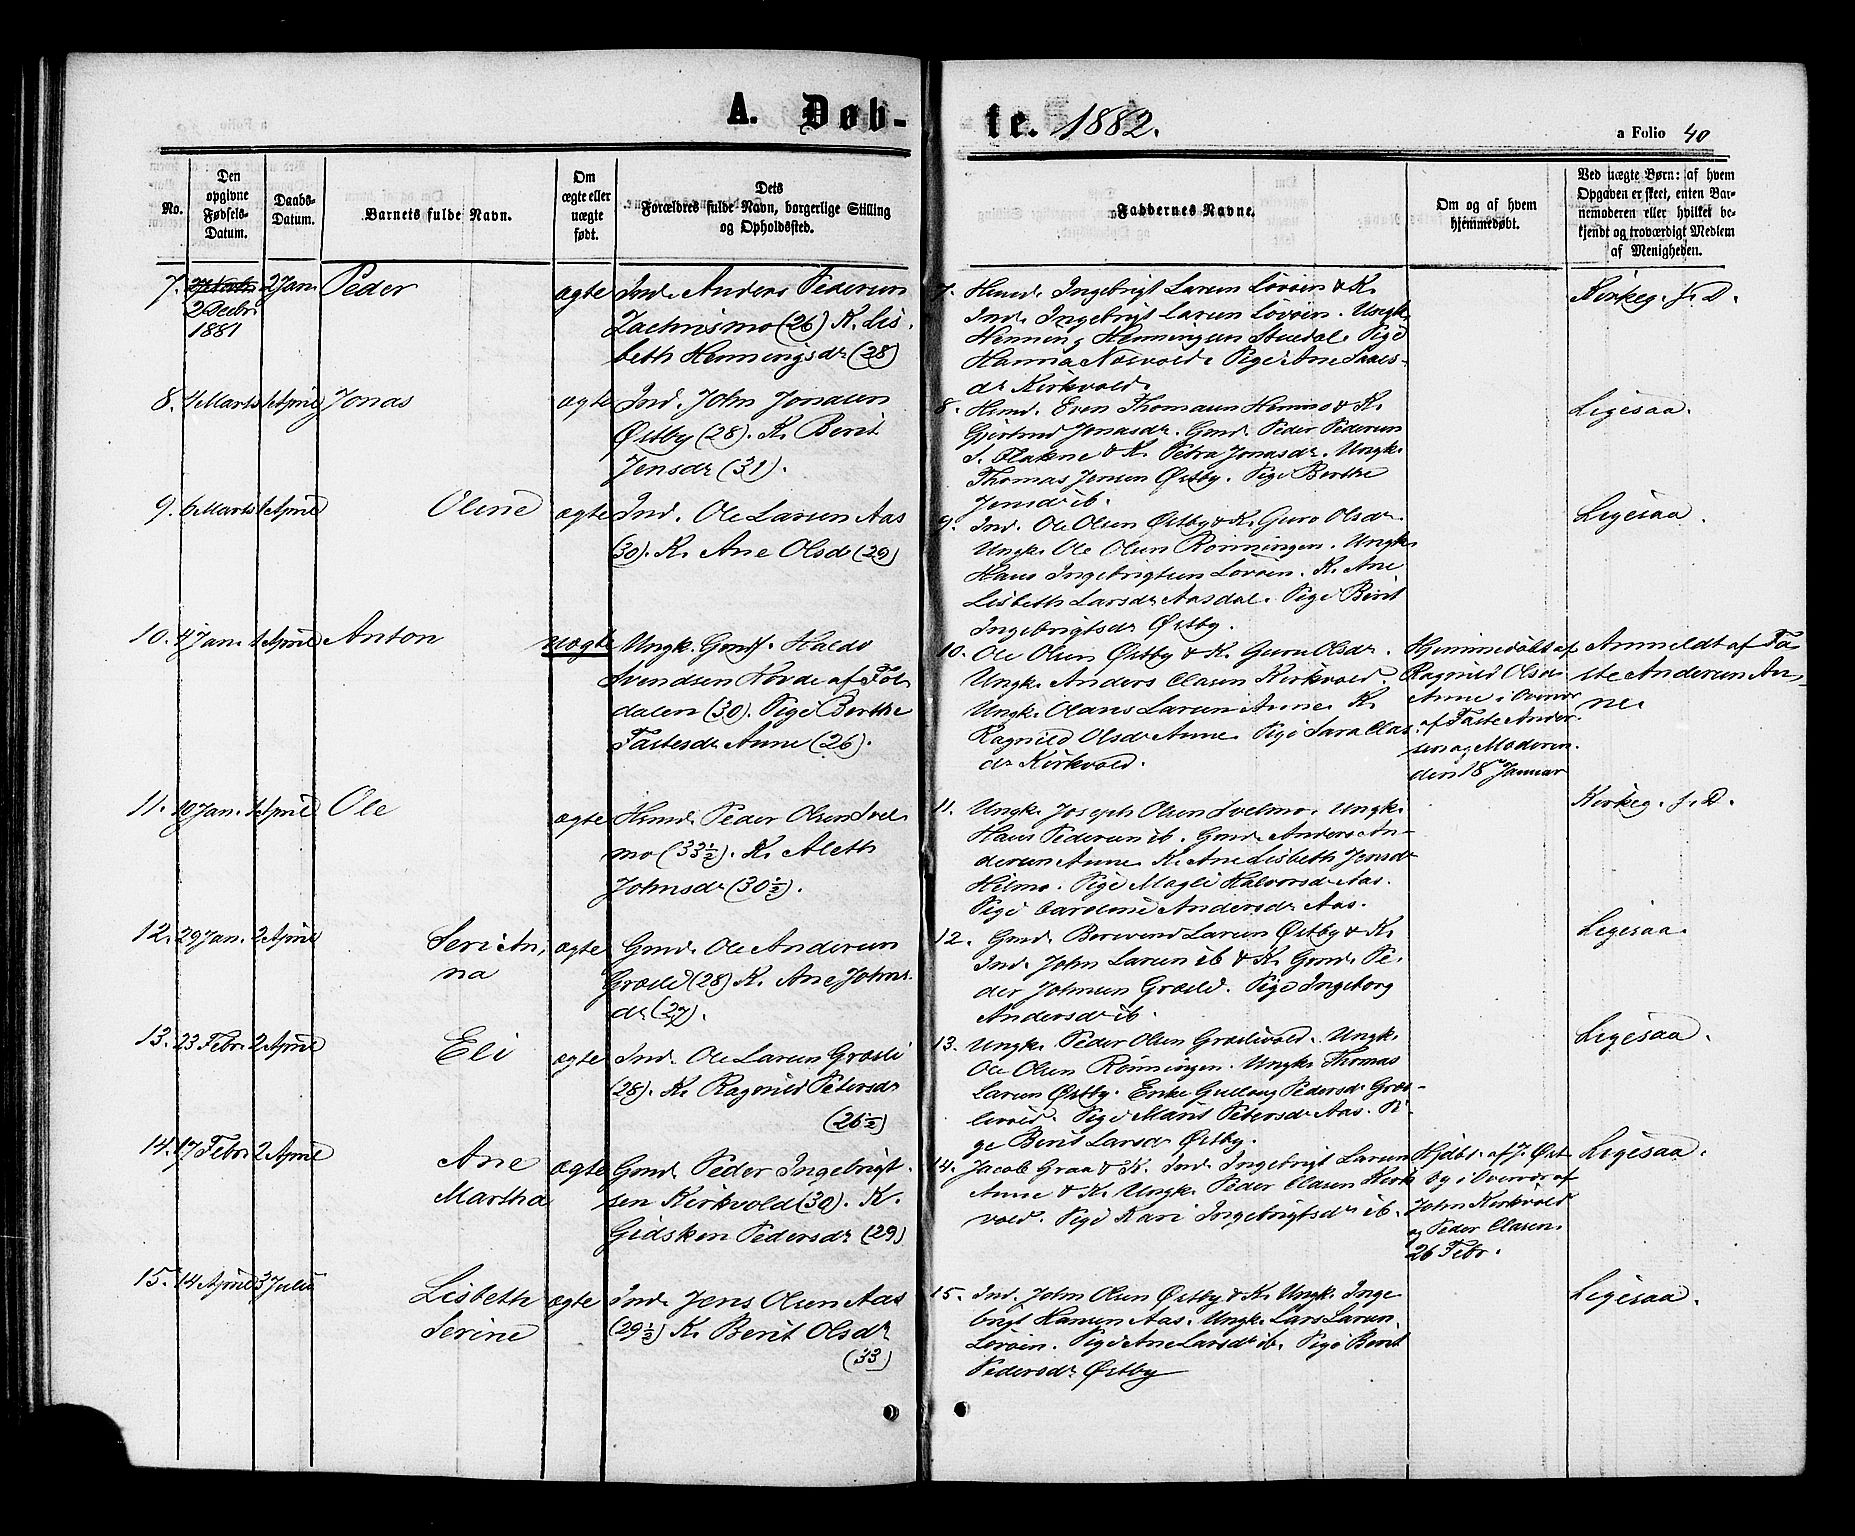 A. Døb-
te. 1882.
a Folio 40
No.
Den
opgivne
Fødsels-
Datum.
Daabs-
Datum.
Barnets fulde Navn.
Om
ægte eller
uægte
født.
Dets
Forældres fulde Navn, borgerlige Stilling
og Opholdssted.
Faddernes Navne.
Om og af hvem
hjemmedøbt.
Ved uægte Børn: af hvem
Opgaven er skeet, enten Bar-
nemoderen eller hvilket be-
kjendt og troværdigt Medlem
af Menigheden.
7. 2 Decbr 2 Jan. Peder ægte Ind. Anders Pedersen
1881 Zachrismo (26) K. Lis-
beth Henningsdr (28)
7. Husmd. Ingebrigt Larsen Lövöen & K.
Ind. Ingebrigt Larsen Lövöen. Ungk.
Henning Henningsen Stuedal. Pige
Hanna Næsvold. Pige Ane Isaks-
dr Kirkvold.
Kirkeg. f. D.
8. 4 Marts 1 April Jonas ægte Ind. John Jonasen
Østby (28). K. Berit
Jensdr (31).
8. Husmd. Even Thomasen Hemmo & K.
Gjertrud Jonasdr. Gmd. Peder Pedersen
S. Flakne & K. Petra Jonasdr. Ungk.
Thomas Jensen Østby. Pige Berthe
Jensdr ib.
Ligesaa.
9. 6 Marts 1 April Oline ægte Ind. Ole Larsen Aas
(30). K. Ane Olsdr (29)
9. Ind. Ole Olsen Østby & K. Guro Olsdr.
Ungk. Ole Olsen Rönningen. Ungk.
Hans Ingebrigtsen Lövöen. K. Ane
Lisbeth Larsdr Aasdal. Pige Berit
Ingebrigtsdr Østby.
Ligesaa.
10. 4 Jan. 1 April Anton uægte Ungk. Gmdf. Haldo
Svendsen Hovde af Fol-
dalen (30). Pige Berthe
Fastesdr Aune (26).
10. Ole Olsen Østby & K. Guru Olsdr.
Ungk. Anders Olasen Kirkvold.
Ungk. Olaus Larsen Aune. K.
Ragnild Olsdr Aune. Pige Sara Olas-
dr Kirkvold.
Hjemmedöbt af
Ragnild Olsdr
Aune i Overvær
af Faste Ander-
sen og Moderen
den 18 Januar
Anmeldt af Fa-
ste Andersen Au-
ne.
11. 10 Jan. 1 April Ole ægte Husmd. Peder Olsen Svel-
mo (33½). K. Aleth
Johnsdr (30½).
11. Ungk. Joseph Olsen Svelmo. Ungk.
Hans Pedersen ib. Gmd. Anders An-
dersen Aune. K. Ane Lisbeth Jensdr
Hilmo. Pige Magli Halvorsdr Aas.
Pige Caroline Andersdr Aas.
Kirkeg. f. D.
12. 29 Jan. 2 April Seri An-
na ægte Gmd. Ole Andersen
Græsli (28) K. Ane Johns-
dr (27).
12. Gmd. Bersvend Larsen Østby & K.
Ind. John Larsen ib & K. Gmd. Pe-
der Johnsen Græsli. Pige Ingeborg
Andersdr ib.
Ligesaa.
13. 23 Febr. 2 April Eli ægte Ind. Ole Larsen Græsli
(28). K. Ragnild Petersdr
(26½)
13. Ungk. Peder Olsen Græslivold. Ungk.
Ole Olsen Rönningen. Ungk. Thomas
Larsen Østby. Enke Gullaug Pedersdr Græs-
livold. Pige Marit Petersdr Aas. Pi-
ge Berit Larsdr Østby.
Ligesaa.
14. 17 Febr. 2 April Ane
Martha ægte Gmd. Peder Ingebrigt-
sen Kirkvold (30). K.
Gidsken Pedersdr (29)
14. Jacob Graa & K. Ind. Ingebrigt Larsen
Aune & K. Ungk. Peder Olasen Kirk-
vold. Pige Kari Ingebrigtsdr ib.
Hjdbt. af J. Øst-
by i Overvær af
John Kirkvold
og Peder Olasen.
26 Febr.
Ligesaa.
15. 14 April 3 Juli Lisbeth
Serine ægte Ind. Jens Olsen Aas
(29½) K. Berit Olsdr
(33)
15. Ind. John Olsen Østby & K. Ungk. Inge-
brigt Hansen Aas. Ungk. Lars Larsen
Lövöen. Pige Ane Larsdr ib. Pige Berit
Pedersdr Østby
Ligesaa.